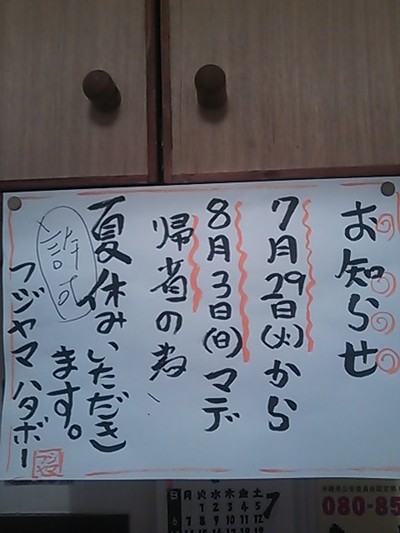 お知らせ
7月29日(火)から
8月3日(日)マデ
帰省の為、
夏休みいただき
ます。
許可
フジヤマ ハタボー
フジヤマ
7
日月火水木金土
1 2 3 4 5
6 7 8 9 10 11 12
080-85